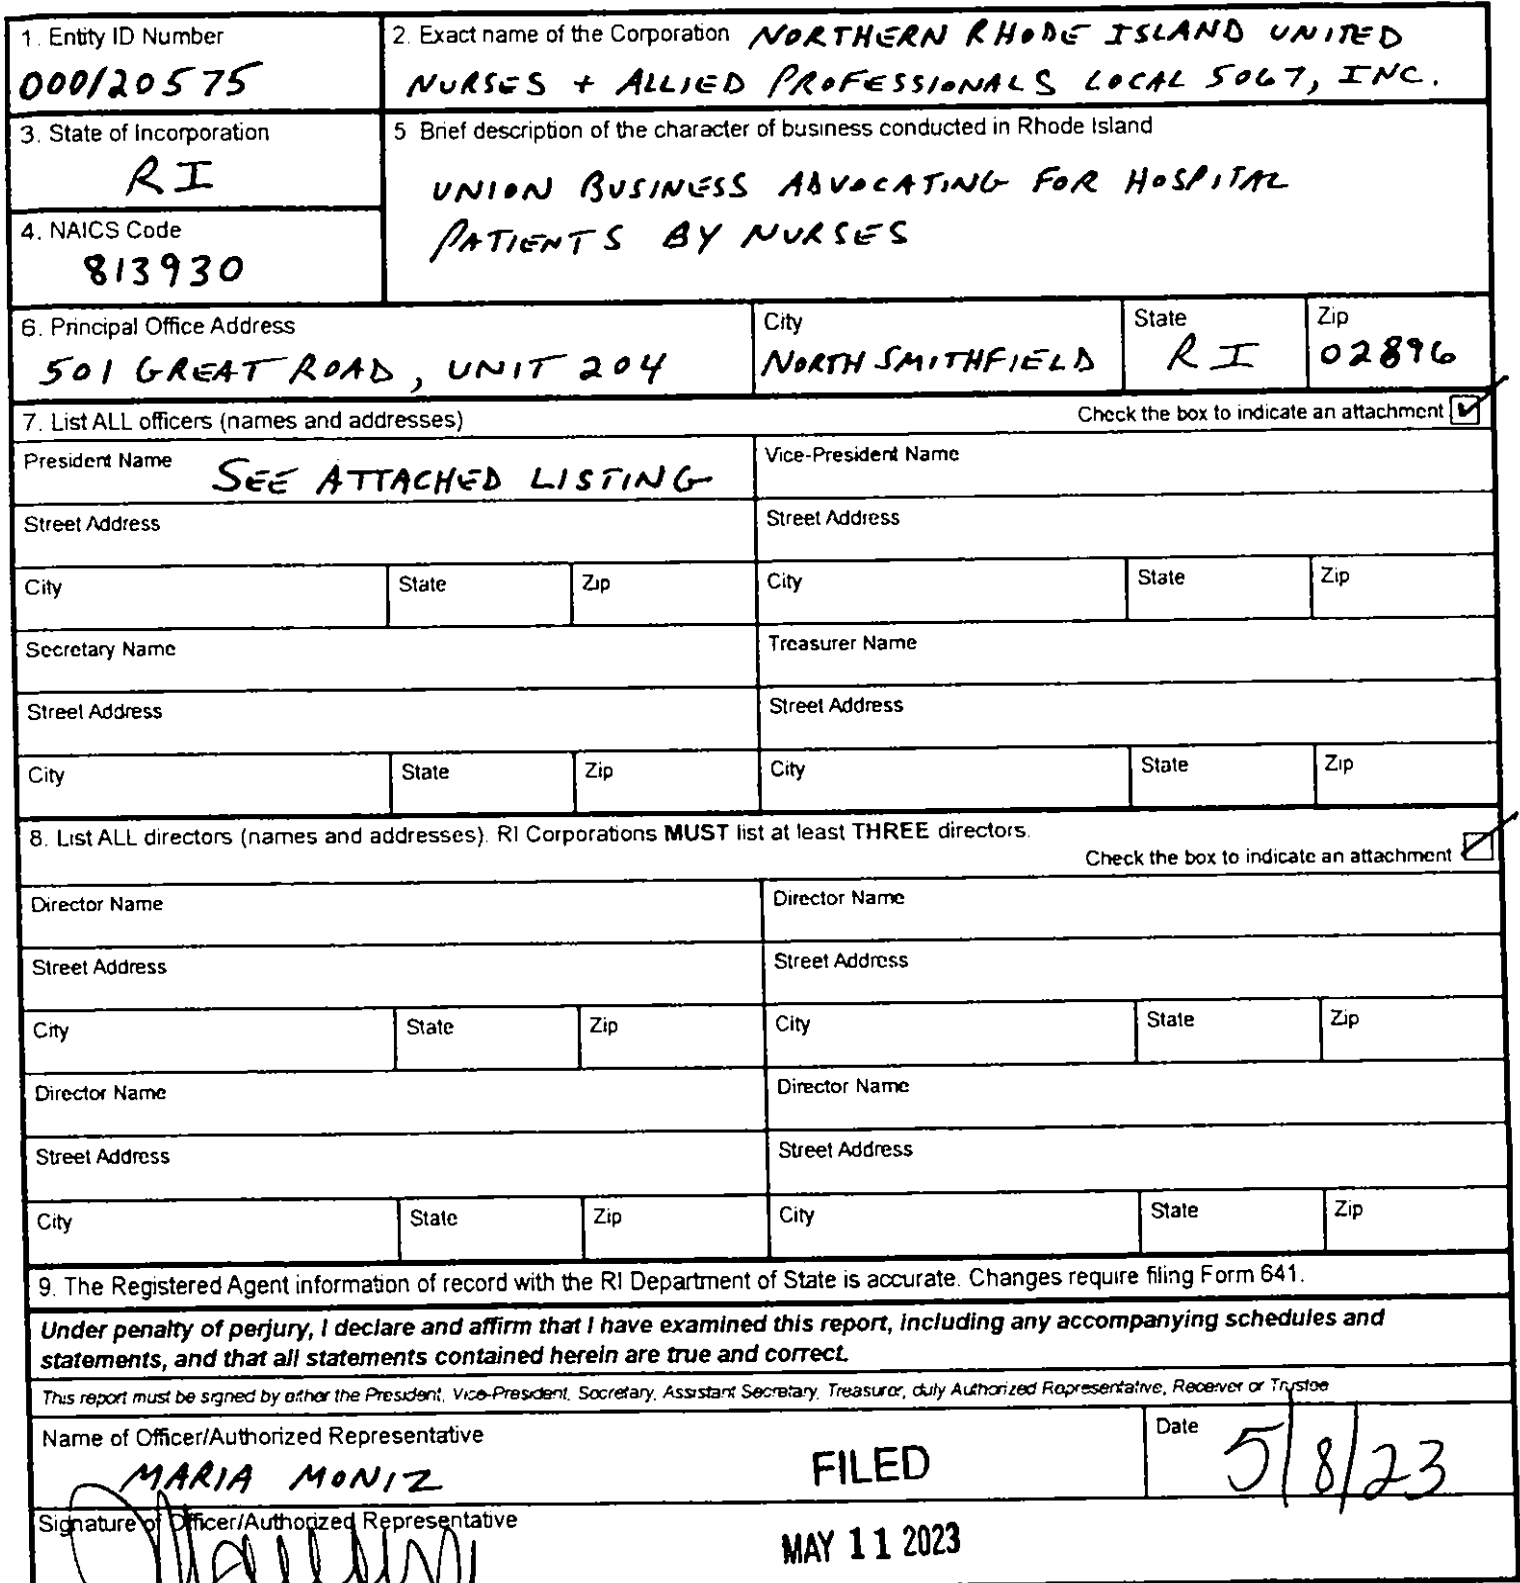 1. Entity ID Number
000120575
2. Exact name of the Corporation NORTHERN RHODE ISLAND UNITED
NURSES + ALLIED PROFESSIONALS LOCAL 5067, INC.
3. State of Incorporation
RI
4. NAICS Code
813930
5 Brief description of the character of business conducted in Rhode Island
UNION BUSINESS ADVOCATING FOR HOSPITAL
PATIENTS BY NURSES
6. Principal Office Address
501 GREAT ROAD, UNIT 204
City
NORTH SMITHFIELD
State
RI
Zip
02896
7. List ALL officers (names and addresses)
Check the box to indicate an attachment
President Name SEE ATTACHED LISTING
Vice-President Name
Street Address
Street Address
City State Zip City State Zip
Secretary Name
Treasurer Name
Street Address
Street Address
City State Zip City State Zip
8. List ALL directors (names and addresses). RI Corporations MUST list at least THREE directors.
Check the box to indicate an attachment
Director Name
Director Name
Street Address
Street Address
City State Zip City State Zip
Director Name
Director Name
Street Address
Street Address
City State Zip City State Zip
9. The Registered Agent information of record with the RI Department of State is accurate. Changes require filing Form 641.
Under penalty of perjury, I declare and affirm that I have examined this report, including any accompanying schedules and
statements, and that all statements contained herein are true and correct.
This report must be signed by either the President, Vice-President, Secretary, Assistant Secretary, Treasurer, duly Authorized Representative, Receiver or Trustee
Name of Officer/Authorized Representative
MARIA MONIZ
FILED
Date
5/8/23
Signature of Officer/Authorized Representative
MAY 11 2023